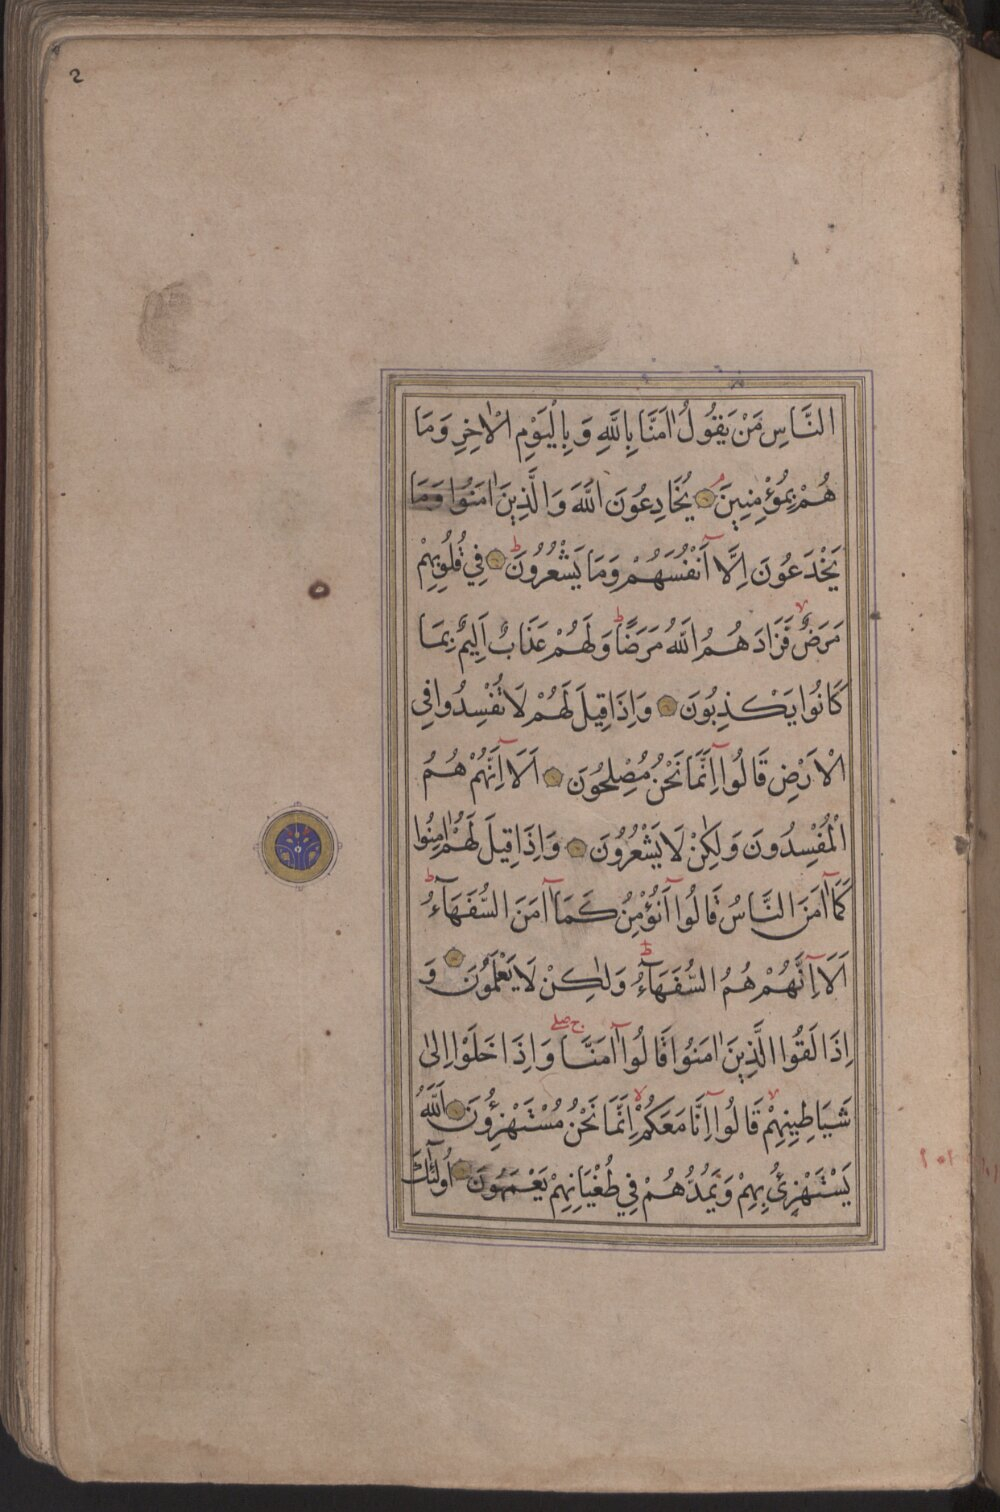 2
النَّاسِ مَنْ يَقُولُ اٰمَنَّا بِاللّٰهِ وَ بِالْيَوْمِ الْاٰخِرِ وَ مَا
هُمْ بِمُؤْمِنِينَ يُخَادِعُونَ اللّٰهَ وَ الَّذِينَ اٰمَنُوا وَمَا
يَخْدَعُونَ اِلَّا اَنْفُسَهُمْ وَمَا يَشْعُرُونَ ط فِي قُلُوبِهِمْ
مَرَضٌ لا فَزَادَهُمُ اللّٰهُ مَرَضًا ط وَلَهُمْ عَذَابٌ اَلِيمٌ بِمَا
كَانُوا يَكْذِبُونَ وَ اِذَا قِيلَ لَهُمْ لَا تُفْسِدُوا فِي
الْاَرْضِ قَالُوٓا اِنَّمَا نَحْنُ مُصْلِحُونَ اَلَآ اِنَّهُمْ هُمُ
الْمُفْسِدُونَ وَ لٰكِنْ لَا يَشْعُرُونَ وَ اِذَا قِيلَ لَهُمْ اٰمِنُوا
كَمَآ اٰمَنَ النَّاسُ قَالُوٓا اَنُؤْمِنُ كَمَآ اٰمَنَ السُّفَهَآءُ ط
اَلَآ اِنَّهُمْ هُمُ السُّفَهَآءُ ط وَلٰكِنْ لَا يَعْلَمُونَ وَ
اِذَا لَقُوا الَّذِينَ اٰمَنُوا قَالُوٓا اٰمَنَّا ج صلے وَ اِذَا خَلَوْا اِلٰى
شَيَاطِينِهِمْ لا قَالُوٓا اِنَّا مَعَكُمْ لا اِنَّمَا نَحْنُ مُسْتَهْزِؤُنَ اَللّٰهُ
يَسْتَهْزِئُ بِهِمْ وَيَمُدُّهُمْ فِي طُغْيَانِهِمْ يَعْمَهُونَ اُولٰٓئِكَ